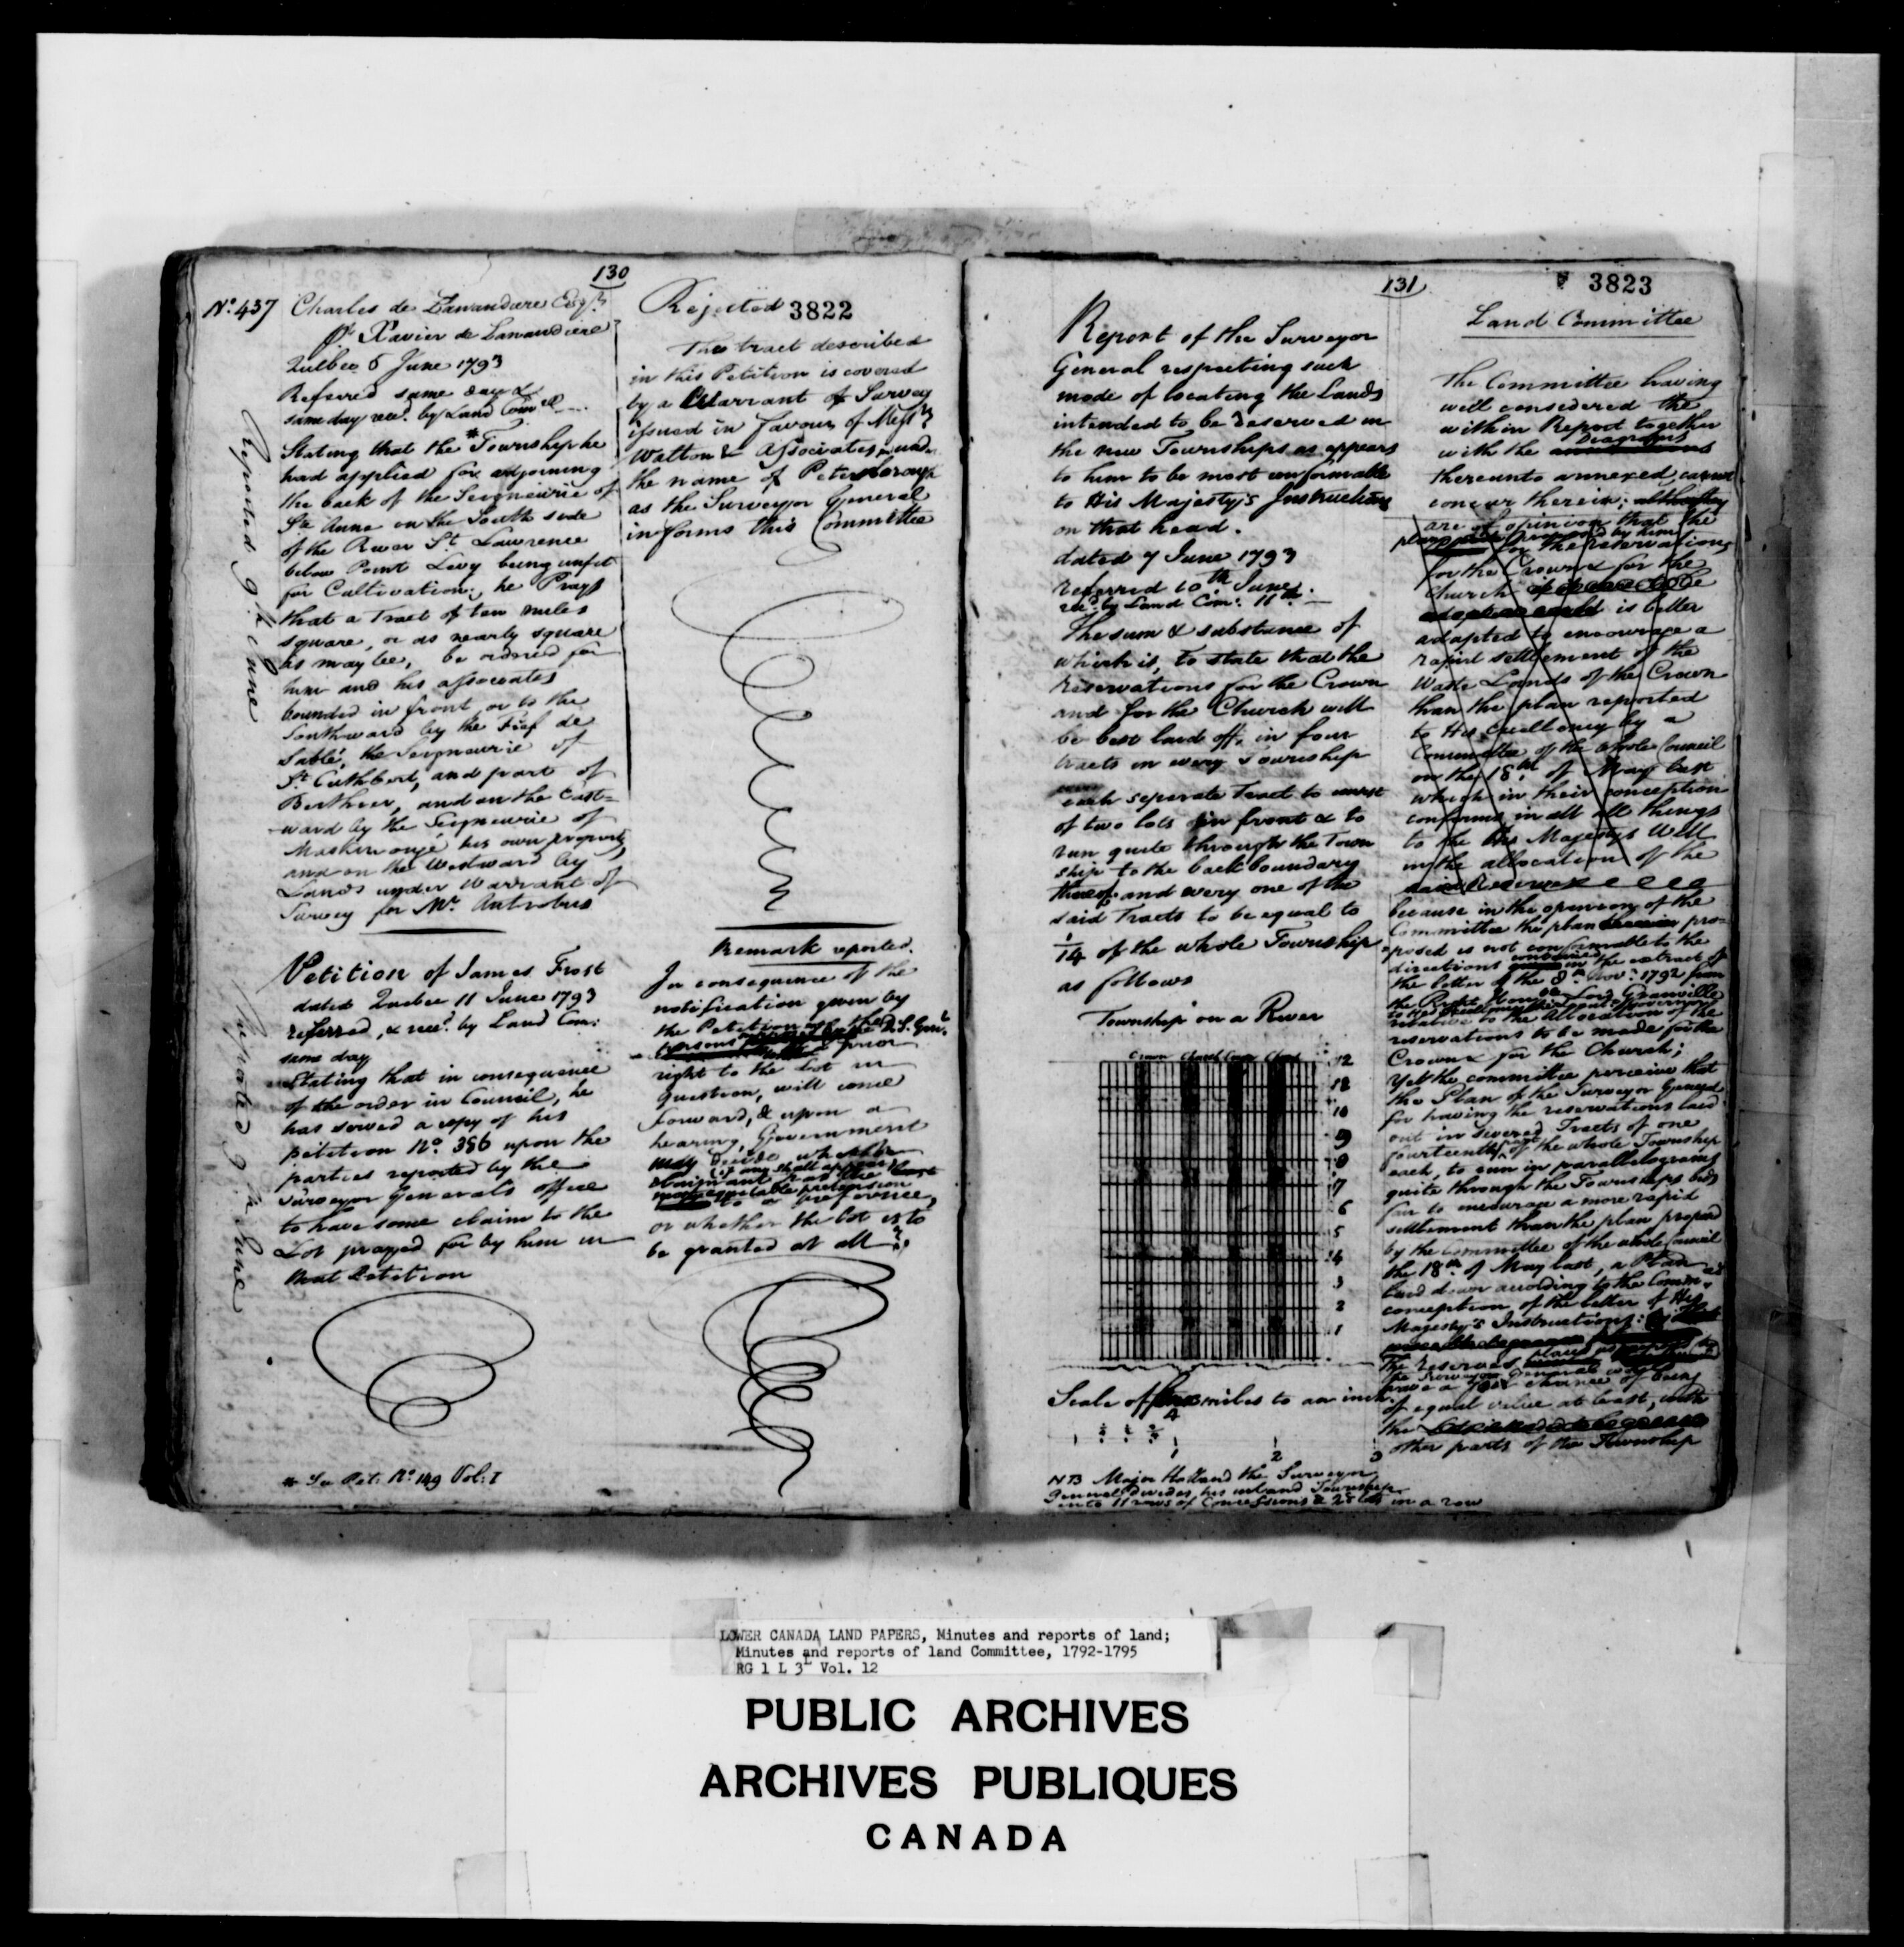 130
No. 437
Charles de Lanaudiere Esqr.
Xavier de Lanaudiere
Quebec 5 June 1793
Referred same day &
same day recd. by Land Comee.
Stating that the * Township he
had applied for adjoining
the back of the Seigneurie of
Ste Anne on the South side
of the River St. Lawrence
below Point Levy being unfit
for Cultivation; he Prays
that a Tract of ten miles
square, or as nearly square
as may be, be ordered for
him and his associates
bounded in front or to the
Southward by the Fief de
Sablé, the Seigneurie of
St. Cuthbert, and part of
Berthier, and on the East=
ward by the Seigneurie of
Maskinongé his own property,
and on the Westward by
Lands under Warrant of
Survey for Mr. Antrobus
Reported 9th June
Rejected 3822
The tract described
in this Petition is covered
by a Warrant of Survey
issued in favour of Messrs
Watton & Associates, under
the name of Peterborough
as the Surveyor General
informs this Committee
Petition of James Frost
dated Quebec 11 June 1793
referred, & recd. by Land Com:
same day
Stating that in consequence
of the order in Council, he
has served a copy of his
petition No. 386 upon the
parties reported by the
Surveyor General's office
to have some claim to the
Lot prayed for by him in
that Petition
* See Pet: No. 149 Vol: I
Remark reported.
In consequence of the
notification given by
the Petitioner
persons prior
right to the lot in
question, will come
forward, & upon a
hearing, Government
may decide whether
(if any shall appear)
claimant has the
most equitable pretension
to a preference,
or whether the lot is to
be granted at all.
131
3823
Report of the Surveyor
General respecting such
mode of locating the Lands
intended to be reserved in
the new Townships as appears
to him to be most conformable
to His Majesty's Instructions
on that head.
dated 7 June 1793
referred 10th June.
recd. by Land Com: 11th.
The sum & substance of
which is, to state that the
reservations for the Crown
and for the Church will
be best laid off, in four
tracts in every Township
each separate Tract to consist
of two lots in front & to
run quite through the Town
ship to the back boundary
thereof, and every one of the
said Tracts to be equal to
1/14 of the whole Township
as follows
Township on a River
Crown Church Crown Church
12
10
9
8
7
6
5
4
3
2
1
Scale of miles to an inch.
1 2 3
NB Major Holland the Surveyor
General divides his inland Township
into 11 rows of Concessions & 28 lots in a row
Land Committee
The Committee having
well considered the
within Report together
with the Diagrams
thereunto annexed, cannot
concur therein;
are of opinion that the
plan proposed by him
for the reservations
for the Crown & for the
Church
is better
adapted to encourage a
rapid settlement of the
Waste Lands of the Crown
than the plan reported
to His Excellency by a
Committee of the whole Council
on the 18th of May last
which in their conception
conforms in all things
to the His Majesty's Will
in the allocation of the
said Reserves
because in the opinion of the
Committee the plan pro=
posed is not conformable to the
directions contained in the extract of
the letter of the 8th Novr. 1792 from
the Right Honble Lord Grenville
relative to the allocation of the
reservations to be made for the
Crown & for the Church;
Yet the committee perceive that
the Plan of the Surveyor General
for having the reservations laid
out in several Tracts of one
fourteenth part of the whole Township
each, to run in parallelograms
quite through the Townships bids
fair to encourage a more rapid
settlement than the plan proposed
by the Committee of the whole Council
the 18th of May last, a Plan
laid down according to the Comm:
conception of the letter of His
Majesty's Instructions:
the reserves placed
the Surveyor General
have a chance of being
of equal value at least, with
the
other parts of the Township
LOWER CANADA LAND PAPERS, Minutes and reports of land;
Minutes and reports of land Committee, 1792-1795
RG 1 L 3L Vol. 12
PUBLIC ARCHIVES
ARCHIVES PUBLIQUES
CANADA